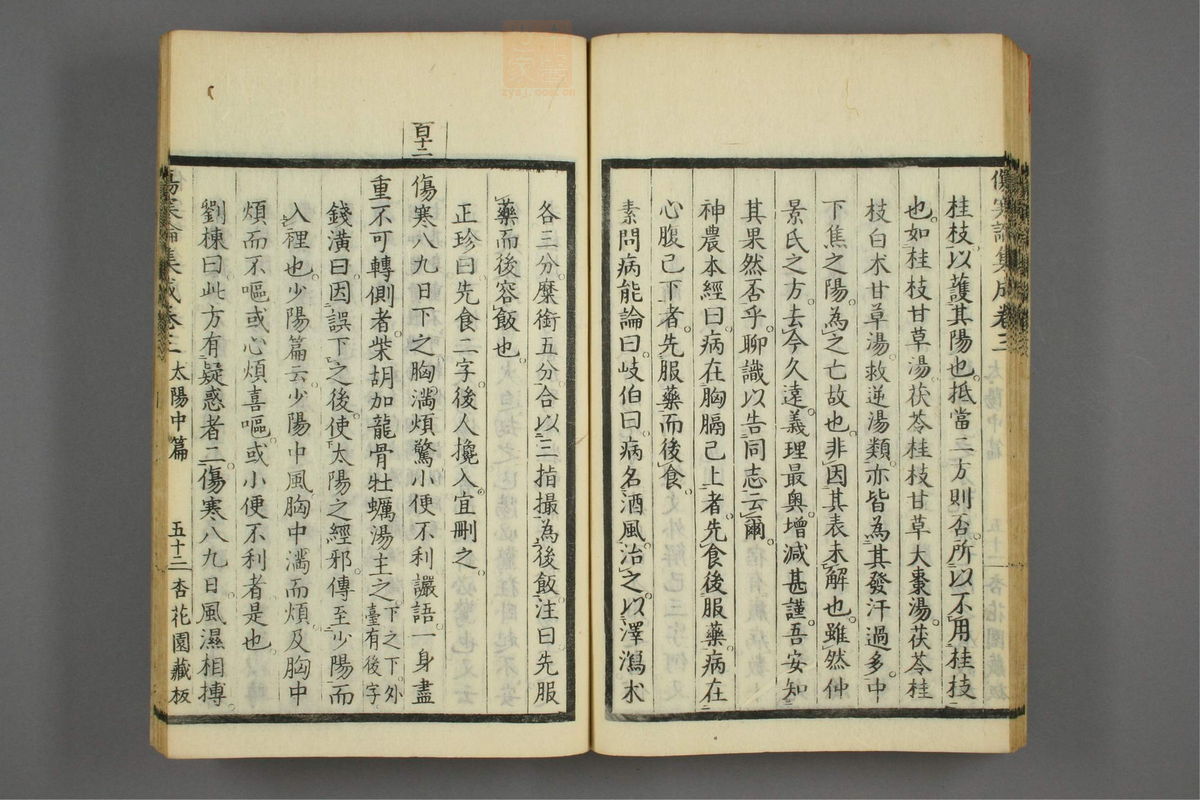 傷寒論集成卷三
桂枝以護其陽也抵當二方則否所以不用桂枝
也如桂枝甘草湯茯苓桂枝甘草大棗湯茯苓桂
枝白朮甘草湯救逆湯類亦皆為其發汗過多中
下焦之陽為之亡故也非因其表未解也雖然仲
景氏之方去今久遠義理最奧增減甚謹吾安知
其果然否乎聊識以告同志云爾
神農本經曰病在胸膈已上者先食後服藥病在
心腹已下者先服藥而後食
素問病能論曰岐伯曰病名酒風治之以澤瀉朮
各三分麋銜五分合以三指撮為後飯注曰先服
藥而後容飯也
正珍曰先食二字後人攙入宜刪之
百十二
傷寒八九日下之胸滿煩驚小便不利讝語一身盡
重不可轉側者柴胡加龍骨牡蠣湯主之下之下外臺有後字
錢潢曰因誤下之後使太陽之經邪傳至少陽而
入裡也少陽篇云少陽中風胸中滿而煩及胸中
煩而不嘔或心煩喜嘔或小便不利者是也
劉棟曰此方有疑惑者二傷寒八九日風濕相摶
傷寒論集成卷三 太陽中篇 五十二 杏花園藏板